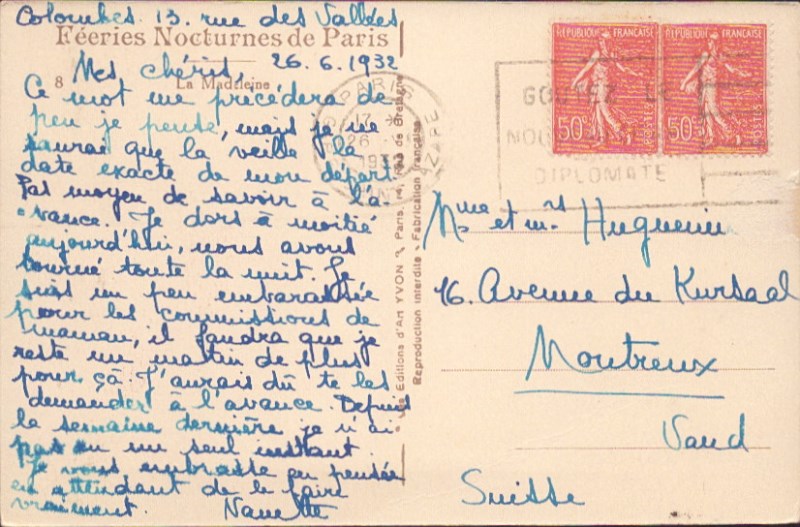 Colombes. 13. rue des Vallées
Féeries Nocturnes de Paris
Mes chéris, 26.6.1932
8 La Madeleine
Ce mot me précédera de
peu je pense, mais je ne
saurai que la veille la
date exacte de mon départ.
Pas moyen de savoir à l'a-
vance. Je dors à moitié
aujourd'hui, nous avons
tourné toute la nuit. Je
suis un peu embarassée
pour les commissions de
maman, il faudra que je
reste un matin de plus
pour çà. J'aurais dû te les
demander à l'avance. Depuis
la semaine dernière je n'ai
pas eu un seul instant.
Je vous embrasse en pensée
en attendant de le faire
vraiment. Nanette
Les Editions d'Art YVON, Paris, Rue de Bretagne
Reproduction interdite - Fabrication française
PARIS
17
26
LAZARE
REPUBLIQUE FRANÇAISE
50c
POSTES
REPUBLIQUE FRANÇAISE
50c
POSTES
GOUTEZ LE
DIPLOMATE
Mme et mr Huguenin
16. Avenue du Kursaal
Montreux
Vaud
Suisse